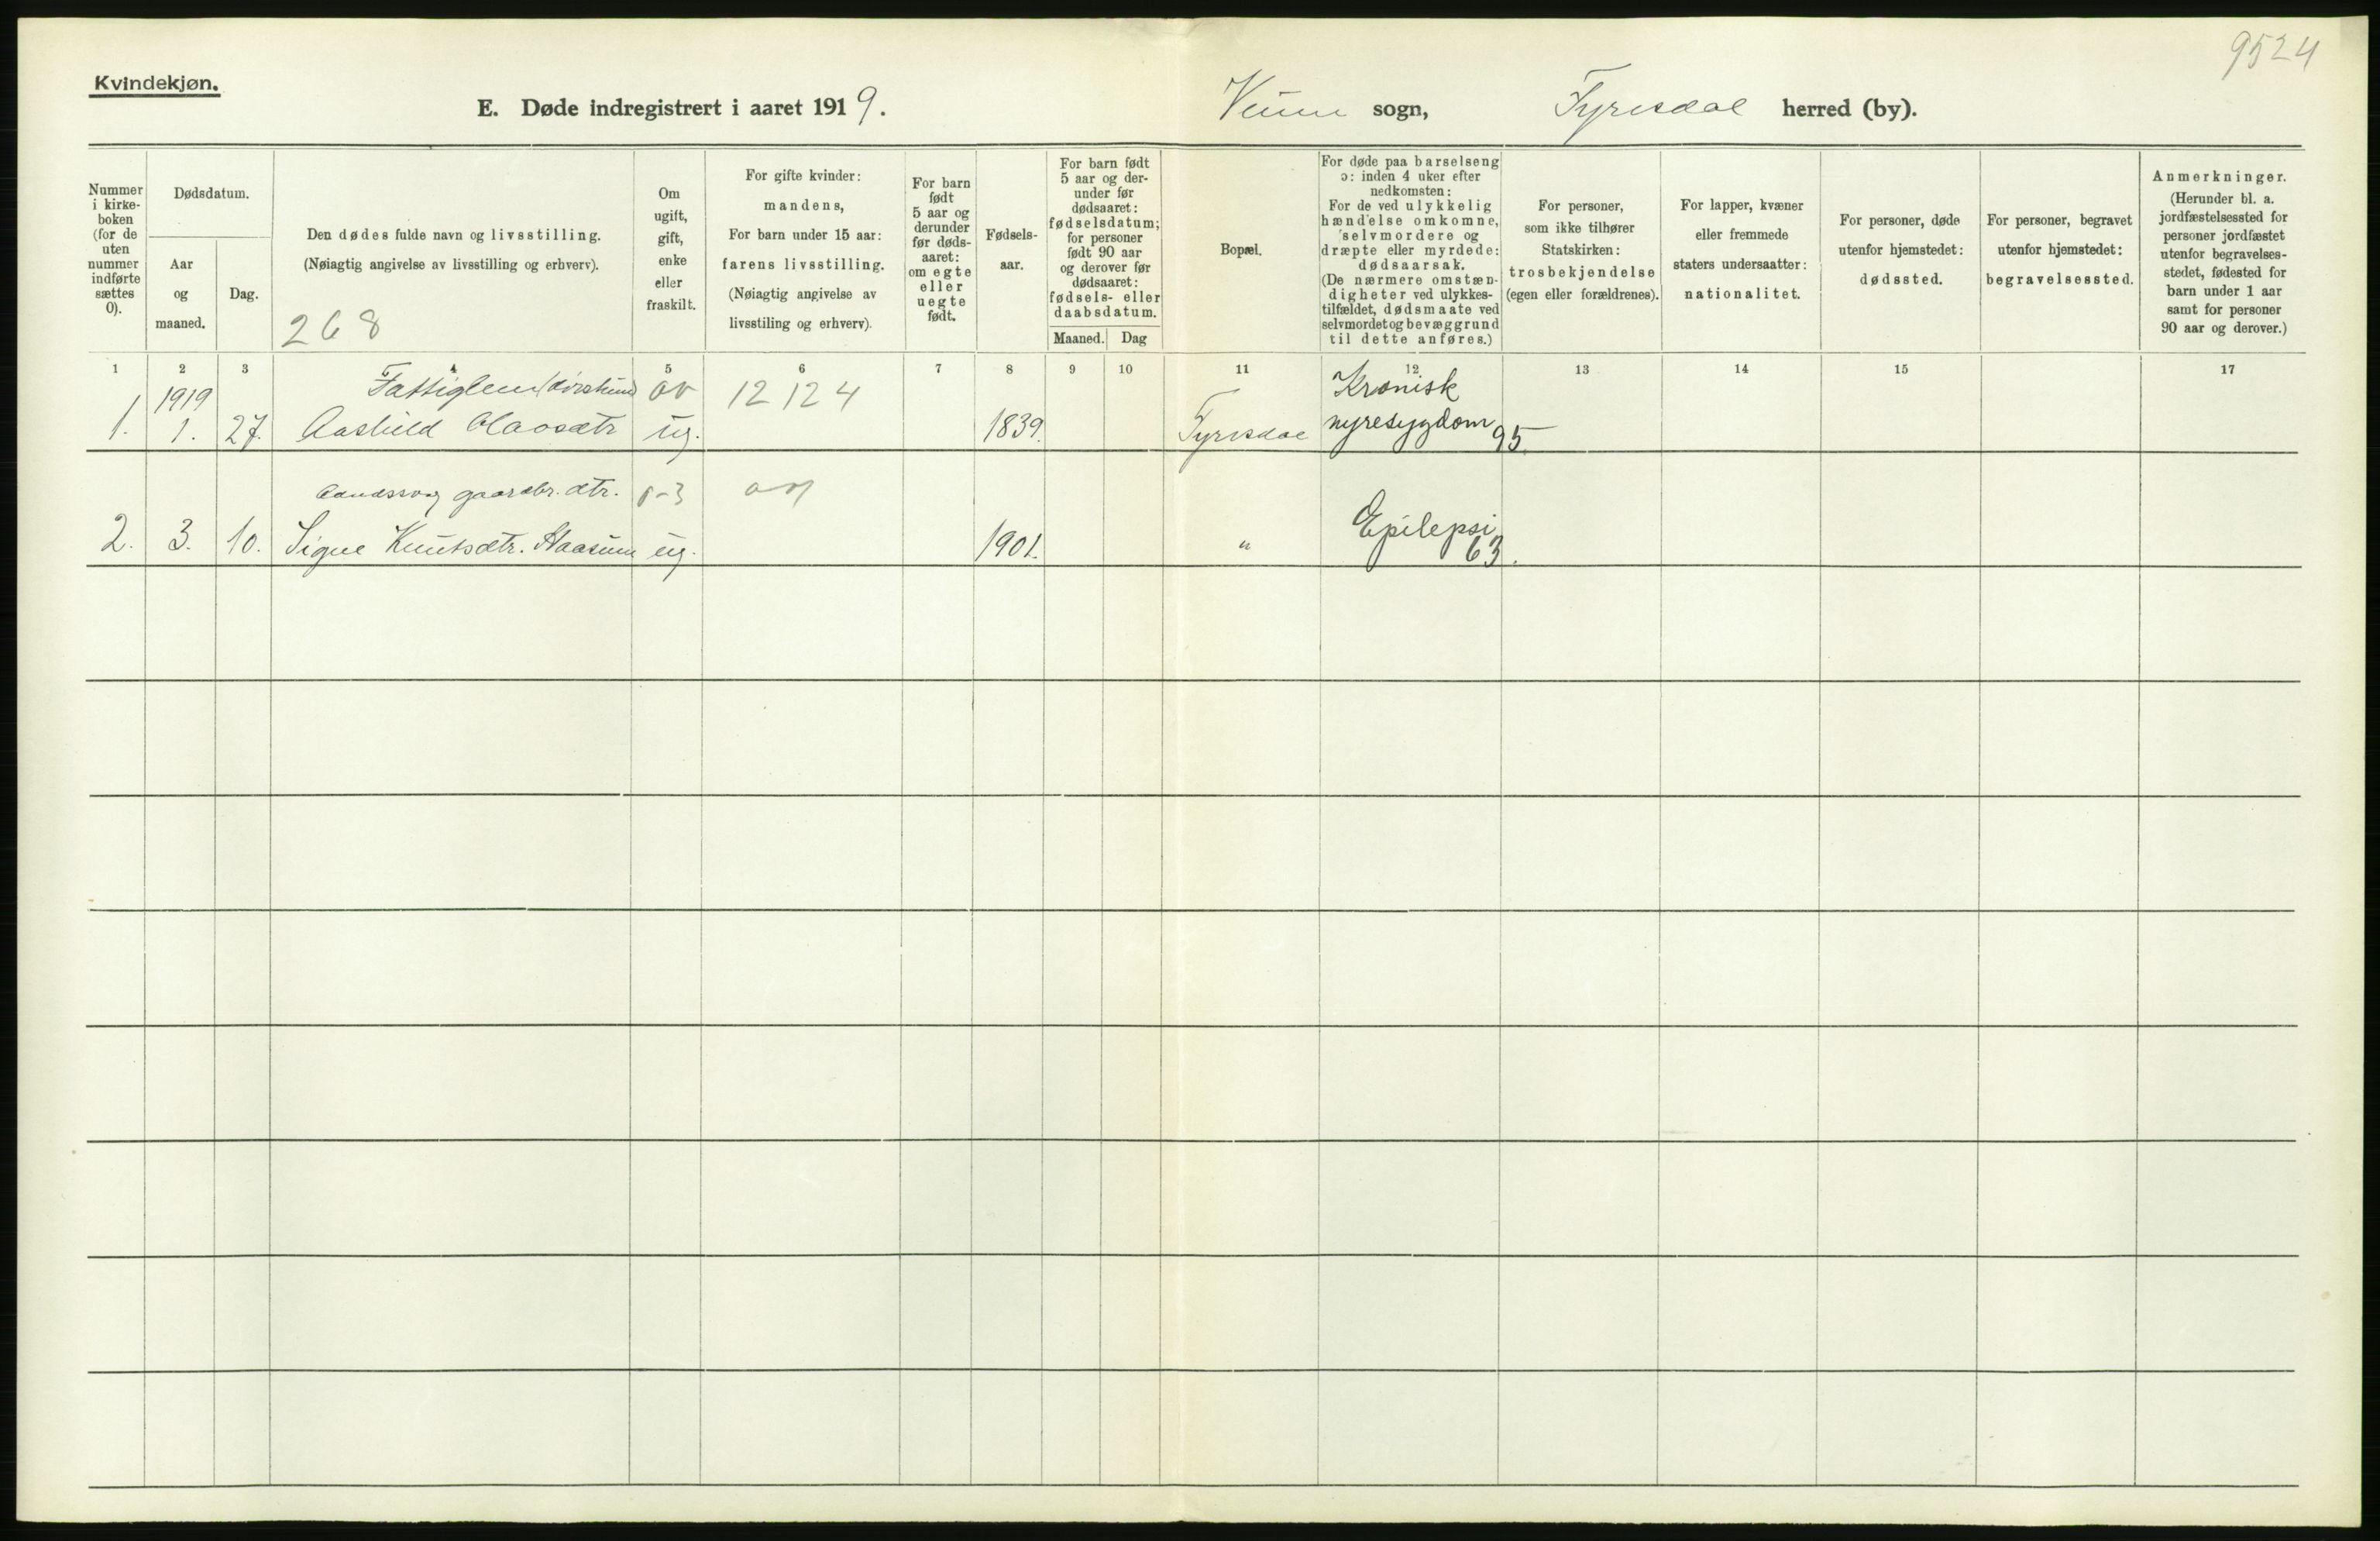 9524
Kvindekjøn.
E. Døde indregistrert i aaret 1919.
Veum sogn, Fyresdal herred (by).
Nummer
i kirke-
boken
(for de
uten
nummer
indførte
sættes
0).
Dødsdatum.
Aar
og
maaned.
Dag.
Den dødes fulde navn og livsstilling.
(Nøiagtig angivelse av livsstilling og erhverv).
268
Om
ugift,
gift,
enke
eller
fraskilt.
For gifte kvinder:
mandens,
For barn under 15 aar:
farens livsstilling.
(Nøiagtig angivelse av
livsstiling og erhverv).
For barn
født
5 aar og
derunder
før døds-
aaret:
om egte
eller
uegte
født.
Fødsels-
aar.
For barn født
5 aar og der-
under før
dødsaaret:
fødselsdatum;
for personer
født 90 aar
og derover før
dødsaaret:
fødsels- eller
daabsdatum.
Maaned. Dag
Bopæl.
For døde paa barselseng
ɔ: inden 4 uker efter
nedkomsten:
For de ved ulykkelig
hændelse omkomne,
selvmordere og
dræpte eller myrdede:
dødsaarsak.
(De nærmere omstæn-
digheter ved ulykkes-
tilfældet, dødsmaate ved
selvmordet og bevæggrund
til dette anføres.)
For personer,
som ikke tilhører
Statskirken:
trosbekjendelse
(egen eller forældrenes).
For lapper, kvæner
eller fremmede
staters undersaatter:
nationalitet.
For personer, døde
utenfor hjemstedet:
dødssted.
For personer, begravet
utenfor hjemstedet:
begravelsessted.
Anmerkninger.
(Herunder bl. a.
jordfæstelsessted for
personer jordfæstet
utenfor begravelses-
stedet, fødested for
barn under 1 aar
samt for personer
90 aar og derover.)
1 2 3 4 5 6 7 8 9 10 11 12 13 14 15 17
1919 Fattiglem 12 124 Kronisk
1. 1. 27. Aashild Olavsdtr ug. 1839. Fyresdal nyresygdom 95.
Aandssvag gaardbr. dtr.
2. 3. 10. Signe Knutsdtr. Haasum ug. 1901. " Epilepsi
63.